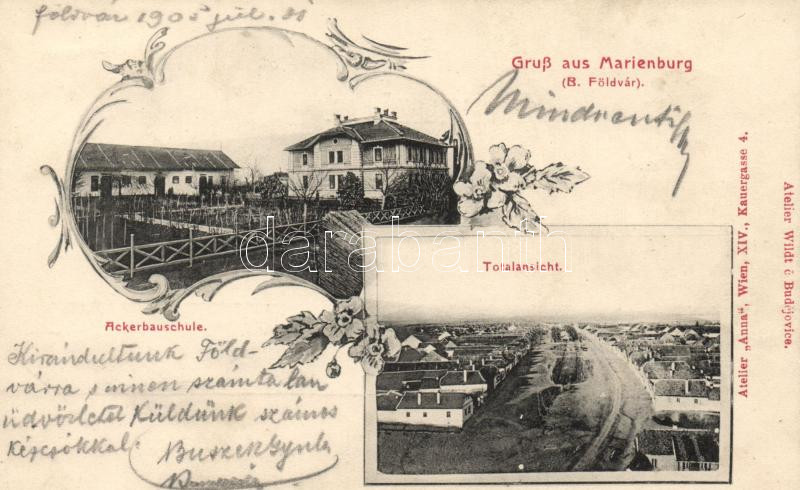 földvár 1905 júl. 31
Gruß aus Marienburg
(B. Földvár).
darabanth
Totalansicht.
Ackerbauschule.
Kirándultunk Föld-
várra s innen számtalan
üdvözletet Küldünk számos
kézcsókkal:
Buszek Gyula
Atelier „Anna", Wien, XIV., Kauergasse 4.
Atelier Wildt é Budějovice.